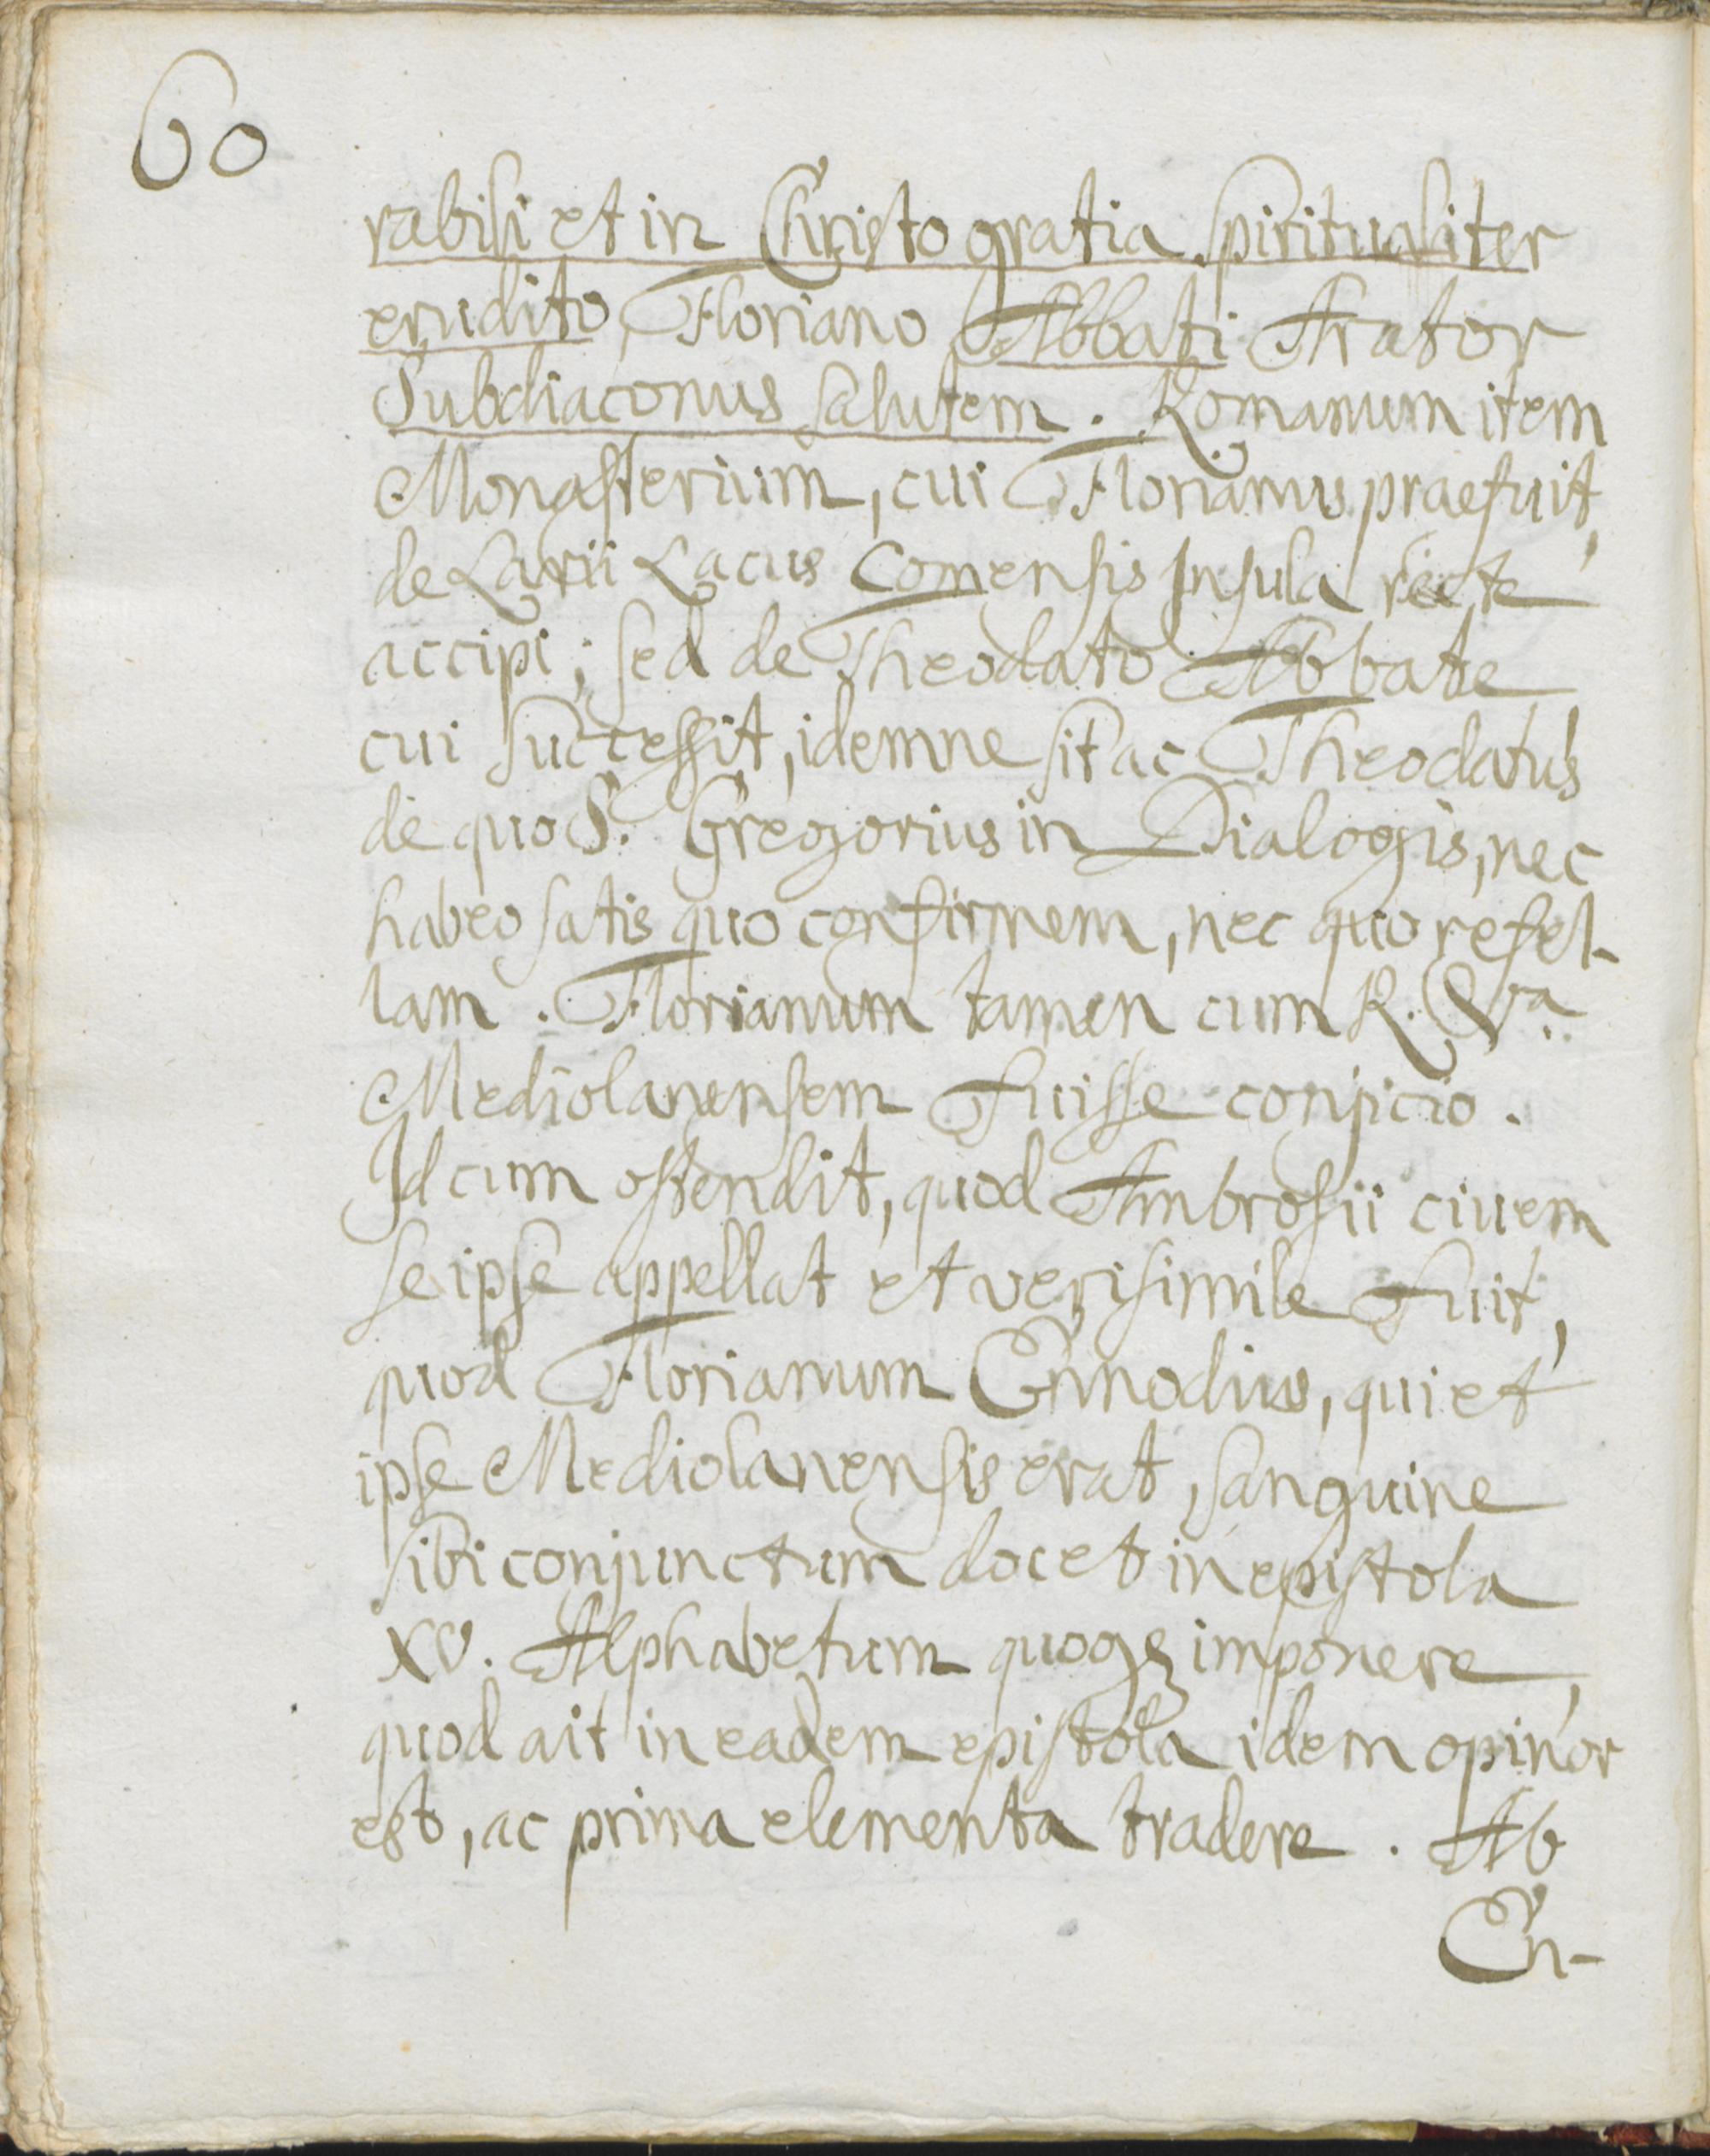 60
rabili et in Christo gratia spiritualiter
erudito Floriano Abbati Arator
Subdiaconus salutem. Romanum item
Monasterium, cui Florianus praefuit,
de Larii Lacus Comensis Insula recte
accipi; sed de Theodato Abbate
cui successit, idemne sit ac Theodatus
de quo S. Gregorius in Dialogis, nec
habeo satis quo confirmem, nec quo refel-
lam. Florianum tamen cum R. Vra.
Mediolanensem fuisse conjicio.
Id cum ostendit, quod Ambrosii civem
se ipse appellat et verisimile fuit,
quod Florianum Ennodius, qui et
ipse Mediolanensis erat, sanguine
sibi conjunctum docet in epistola
XV. Alphabetum quoqꝫ imponere,
quod ait in eadem epistola idem opinor
est, ac prima elementa tradere. Ab
En-